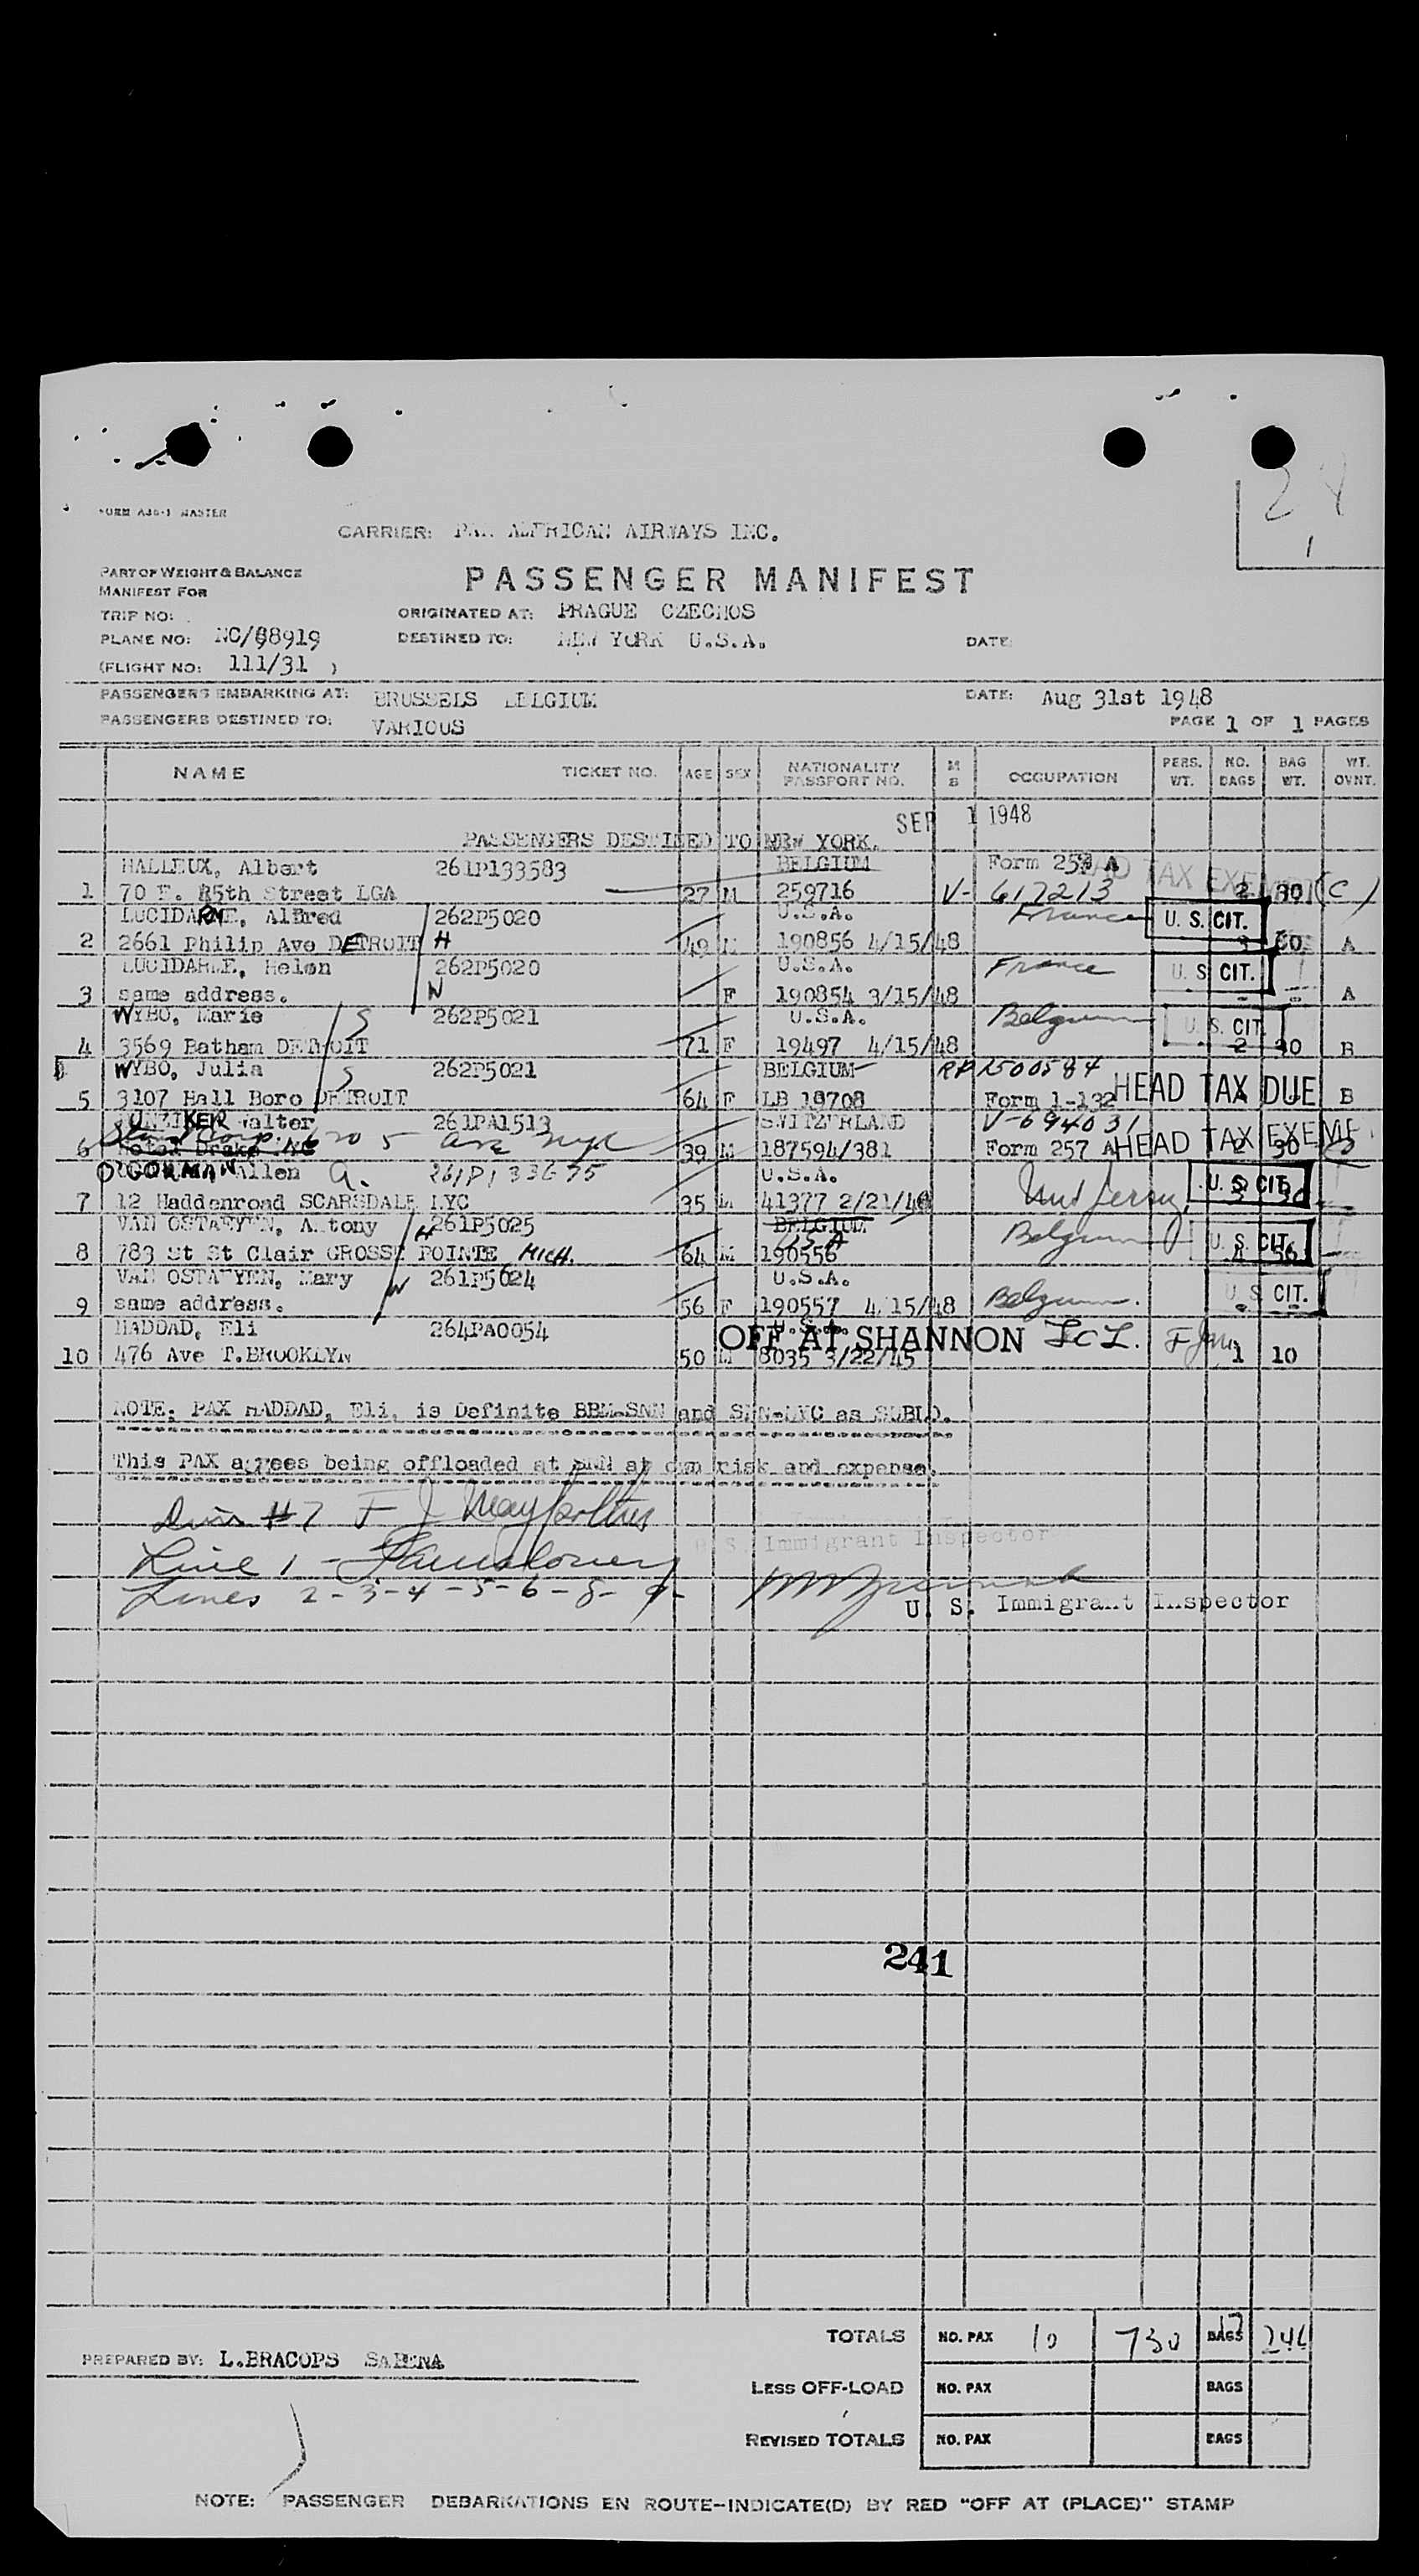 24
1
FORM A36-1 MASTER
CARRIER: PAN AMERICAN AIRWAYS INC.
PART OF WEIGHT & BALANCE
MANIFEST FOR
PASSENGER MANIFEST
TRIP NO:
ORIGINATED AT: PRAGUE CZECHOS
PLANE NO: NC/88919
DESTINED TO: NEW YORK U.S.A.
DATE
(FLIGHT NO: 111/31 )
PASSENGERS EMBARKING AT: BRUSSELS BELGIUM
DATE: Aug 31st 1948
PASSENGERS DESTINED TO: VARIOUS
PAGE 1 OF 1 PAGES
NAME TICKET NO. AGE SEX NATIONALITY PASSPORT NO. M B OCCUPATION PERS. WT. NO. BAGS BAG WT. WT. OVNT.
SEP 1 1948
PASSENGERS DESTINED TO NEW YORK.
HALLEUX, Albert 261P133583 BELGIUM Form 257 A HEAD TAX EXEMPT
1 70 E. 85th Street LGA 27 M 259716 V- 617213 2 30 (C)
LUCIDARME, Alfred 262P5020 U.S.A. France U. S. CIT.
2 2661 Philip Ave DETROIT H 49 M 190856 4/15/48 3 60 A
LUCIDARME, Helen 262P5020 U.S.A. France U. S. CIT.
3 same address. W F 190854 3/15/48 - - A
WYBO, Marie S 262P5021 U.S.A. Belgium U. S. CIT.
4 3569 Batham DETROIT 71 F 19497 4/15/48 2 30 B
WYBO, Julia S 262P5021 BELGIUM RP 1500584 HEAD TAX DUE
5 3107 Hall Boro DETROIT 64 F LB 19708 Form 1-132 B
UNZIKER Walter 261PA1513 SWITZERLAND V-694031
6 Hotel Drake 39 M 187594/381 Form 257 A HEAD TAX EXEMPT 2 30
O'GORMAN Allen A. 261P133675 U.S.A. New Jersey U. S. CIT.
7 12 Haddenroad SCARSDALE NYC 35 M 41377 2/21/46
VAN OSTAEYEN, Antony H 261P5025 BELGIUM USA Belgium U. S. CIT.
8 783 St St Clair GROSSE POINTE MICH. 64 M 190556
VAN OSTAEYEN, Mary W 261P5024 U.S.A. Belgium. U. S. CIT.
9 same address. 56 F 190557 4/15/48 - -
HADDAD, Eli 264PA0054 U.S.A. OFF AT SHANNON
10 476 Ave T.BROOKLYN 50 M 8035 3/22/45 1 10
NOTE: PAX HADDAD, Eli, is Definite BBM-SNN and SNN-NYC as SUBLO.
This PAX agrees being offloaded at SNN at own risk and expense.
#7 F J
Line 1 -
Lines 2-3-4-5-6-8-9-
U. S. Immigrant Inspector
U. S. Immigrant Inspector
241
TOTALS NO. PAX 10 730 BAGS 17 246
PREPARED BY: L.BRACOPS SABENA
LESS OFF-LOAD NO. PAX BAGS
REVISED TOTALS NO. PAX BAGS
NOTE: PASSENGER DEBARKATIONS EN ROUTE-INDICATE(D) BY RED "OFF AT (PLACE)" STAMP